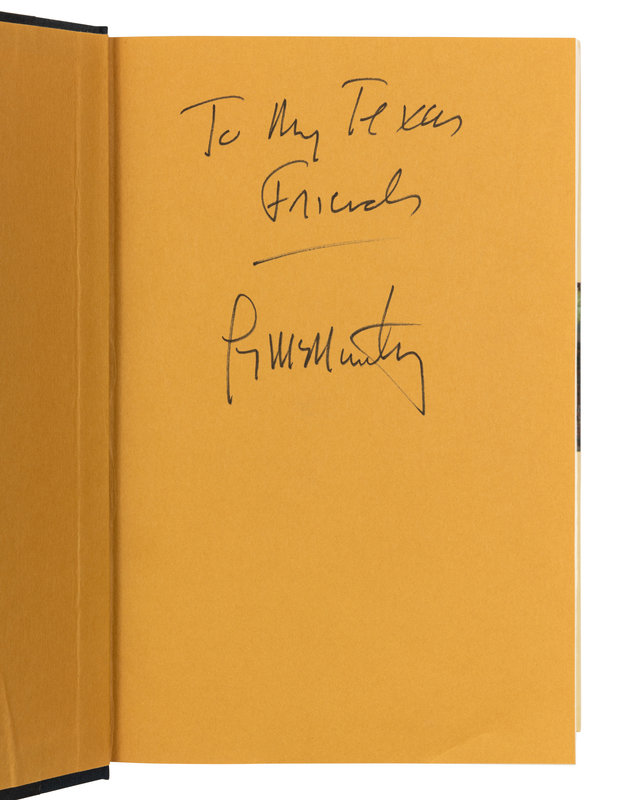 To My Texas
Friends
Larry McMurtry